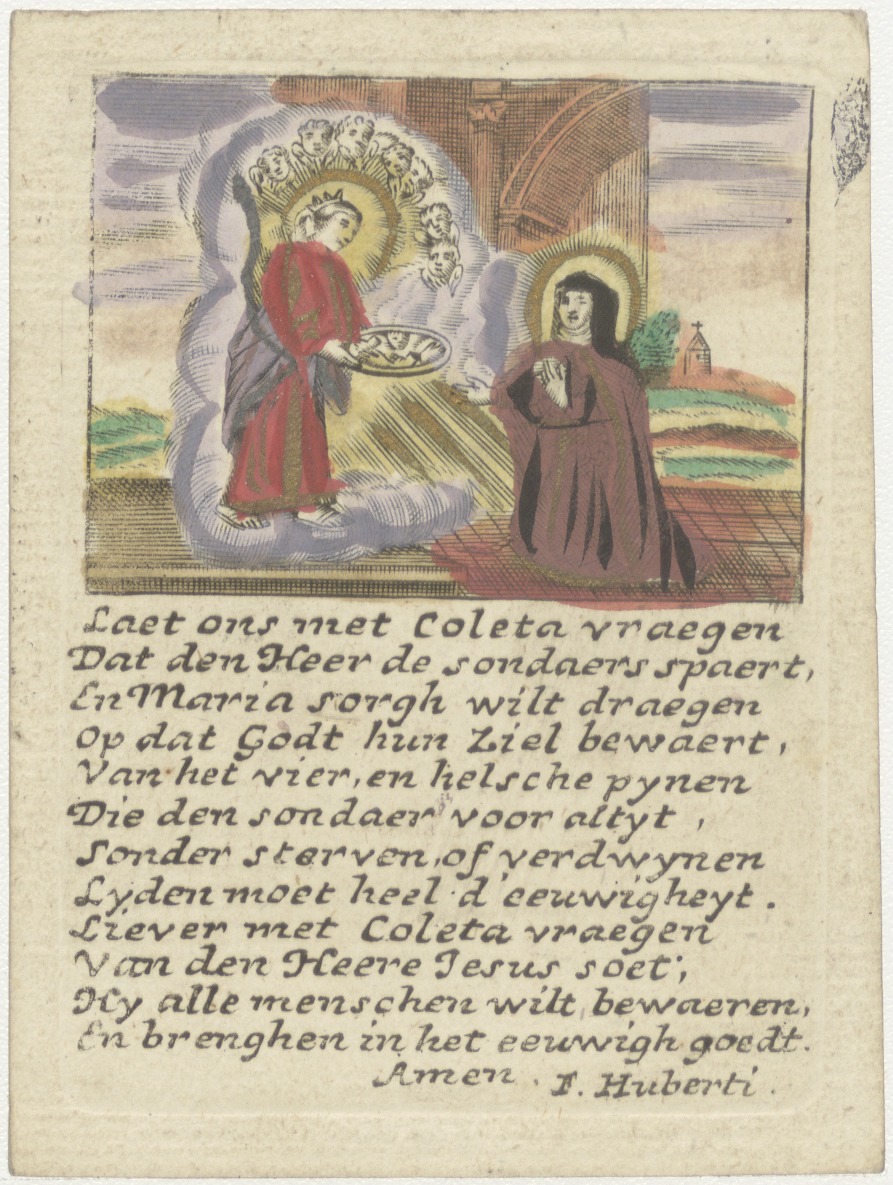 Laet ons met Coleta vraegen
Dat den Heer de sondaers spaert,
En Maria sorgh wilt draegen
Op dat Godt hun Ziel bewaert,
Van het vier, en helsche pynen
Die den sondaer voor altyt,
Sonder sterven, of verdwynen
Lyden moet heel d'eeuwigheyt.
Liever met Coleta vraegen
Van den Heere Jesus soet,
Hy alle menschen wilt bewaeren,
En brenghen in het eeuwigh goedt.
Amen. F. Huberti.